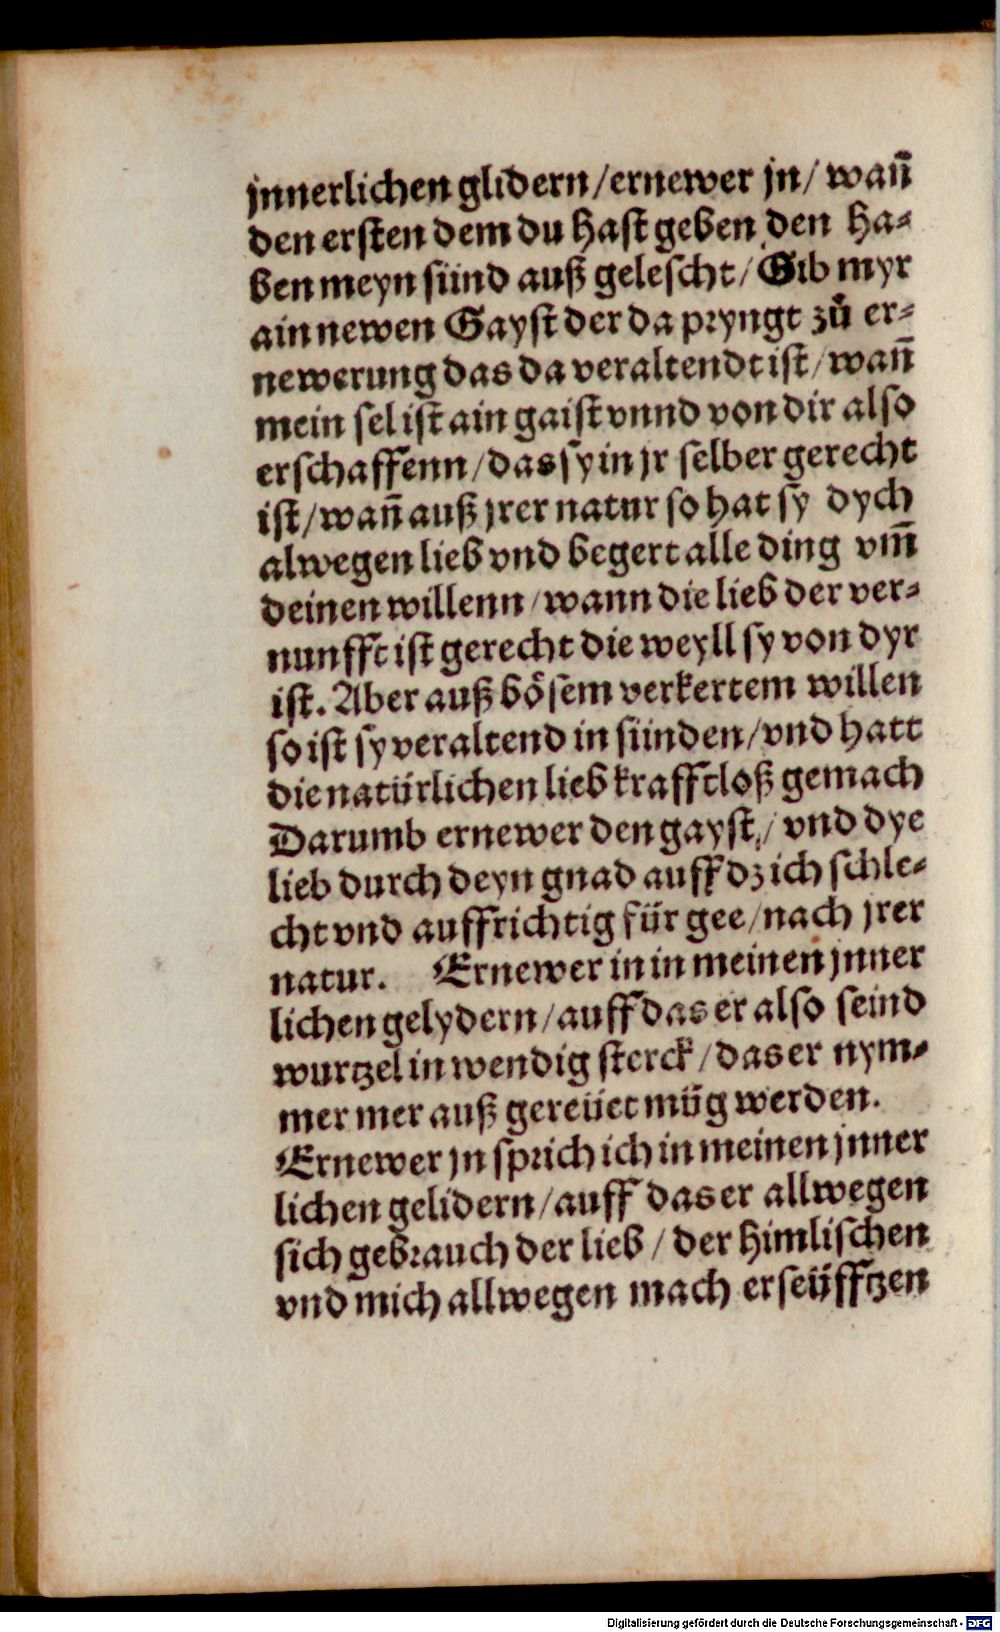 jnnerlichen glidern / ernewer jn / wañ
den ersten dem du hast geben den ha⸗
ben meyn sünd auß gelescht / Gib myr
ain newen Gayst der da pryngt zů er⸗
newerung das da veraltendt ist / wañ
mein sel ist ain gaist vnnd von dir also
erschaffenn / das sy in jr selber gerecht
ist / wañ auß jrer natur so hat sy dych
alwegen lieb vnd begert alle ding vm̄
deinen willenn / wann die lieb der ver⸗
nunfft ist gerecht die weyll sy von dyr
ist. Aber auß bösem verkertem willen
so ist sy veraltend in sünden / vnd hatt
die natürlichen lieb krafftloß gemach
Darumb ernewer den gayst / vnd dye
lieb durch deyn gnad auff dz ich schle⸗
cht vnd auffrichtig für gee / nach jrer
natur. Ernewer in in meinen jnner
lichen gelydern / auff das er also seind
wurtzel in wendig sterck / das er nym⸗
mer mer auß gereüet müg werden.
Ernewer jn sprich ich in meinen jnner
lichen gelidern / auff das er allwegen
sich gebrauch der lieb / der himlischen
vnd mich allwegen mach erseüfftzen
Digitalisierung gefördert durch die Deutsche Forschungsgemeinschaft - DFG